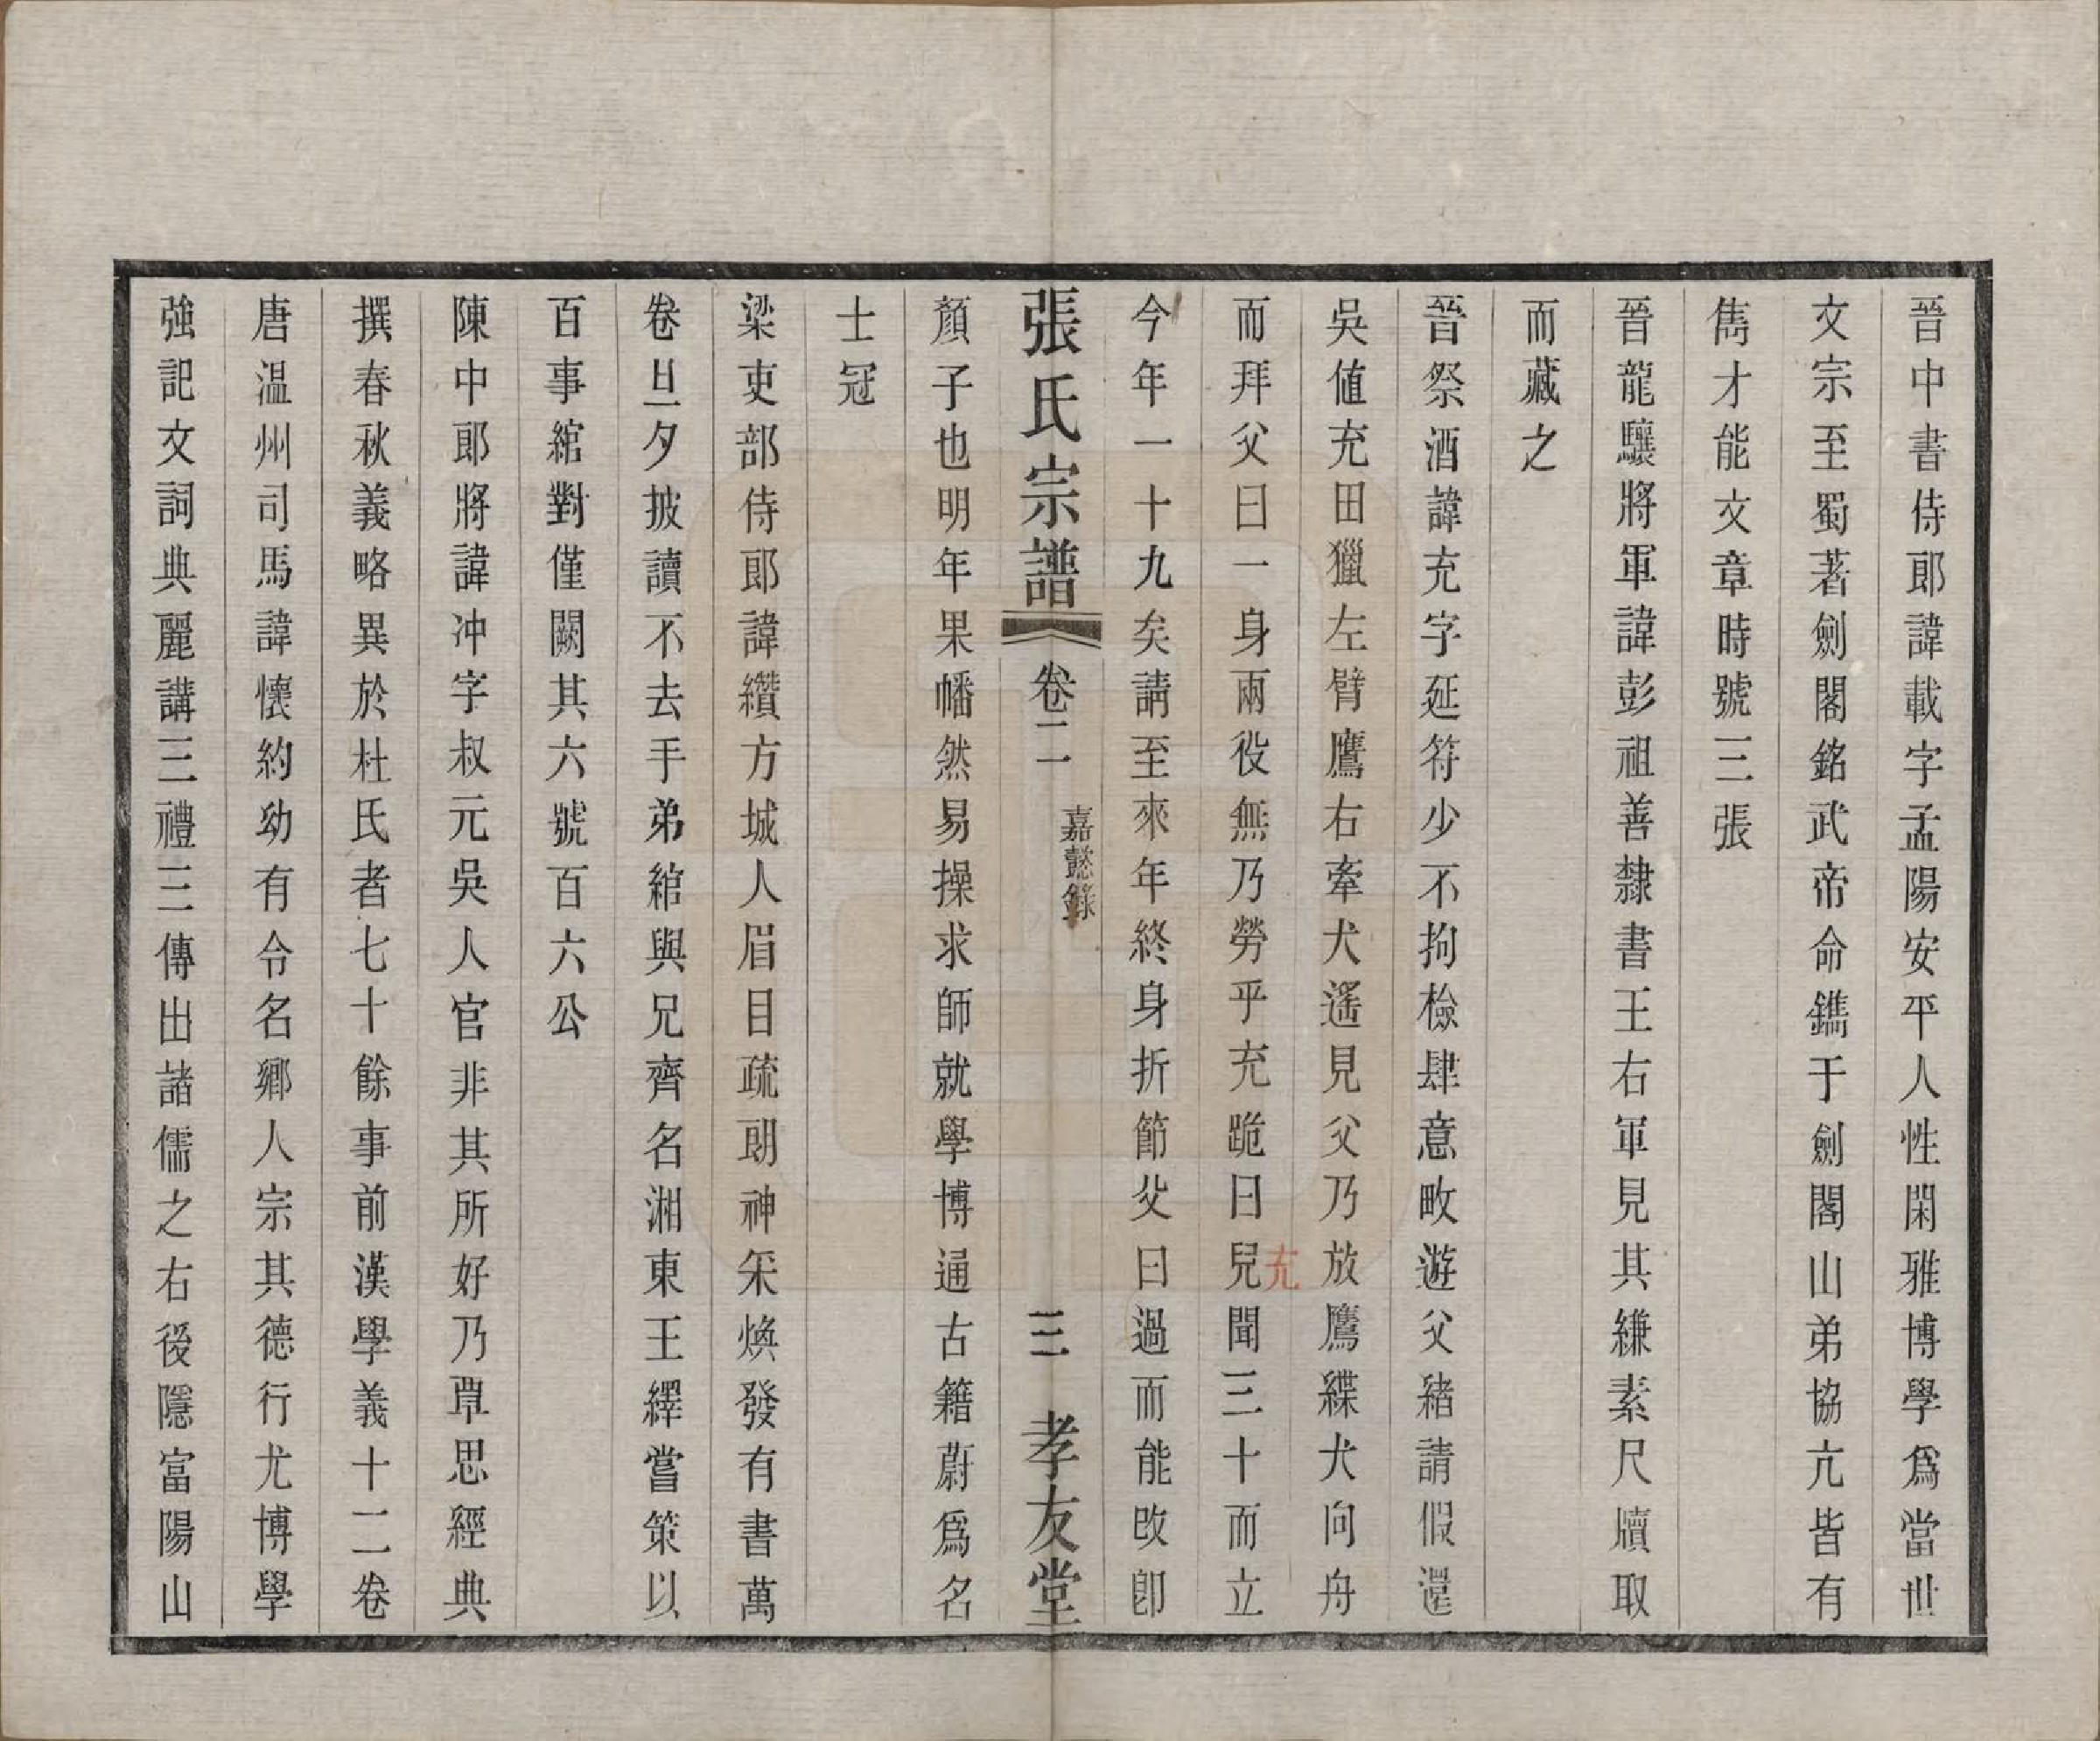 晉中書侍郎諱載字孟陽安平人性閑雅博學爲當世
文宗至蜀著劍閣銘武帝命鐫于劍閣山弟協亢皆有
雋才能文章時號三張
晉龍驤將軍諱彭祖善隸書王右軍見其縑素尺牘取
而藏之
晉祭酒諱充字延符少不拘檢肆意畋遊父緒請假還
吳値充田獵左臂鷹右牽犬遙見父乃放鷹緤犬向舟
而拜父曰一身兩役無乃勞乎充跪曰兒聞三十而立
充
今年一十九矣請至來年終身折節父曰過而能改卽
張氏宗譜 卷二 嘉懿錄 三 孝友堂
顏子也明年果幡然易操求師就學博通古籍蔚爲名
士冠
梁吏部侍郎諱纘方城人眉目疏朗神采煥發有書萬
卷旦夕披讀不去手弟綰與兄齊名湘東王繹嘗策以
百事綰對僅闕其六號百六公
陳中郎將諱冲字叔元吳人官非其所好乃覃思經典
撰春秋義略異於杜氏者七十餘事前漢學義十二卷
唐溫州司馬諱懷約幼有令名鄉人宗其德行尤博學
強記文詞典麗講三禮三傳出諸儒之右後隱富陽山